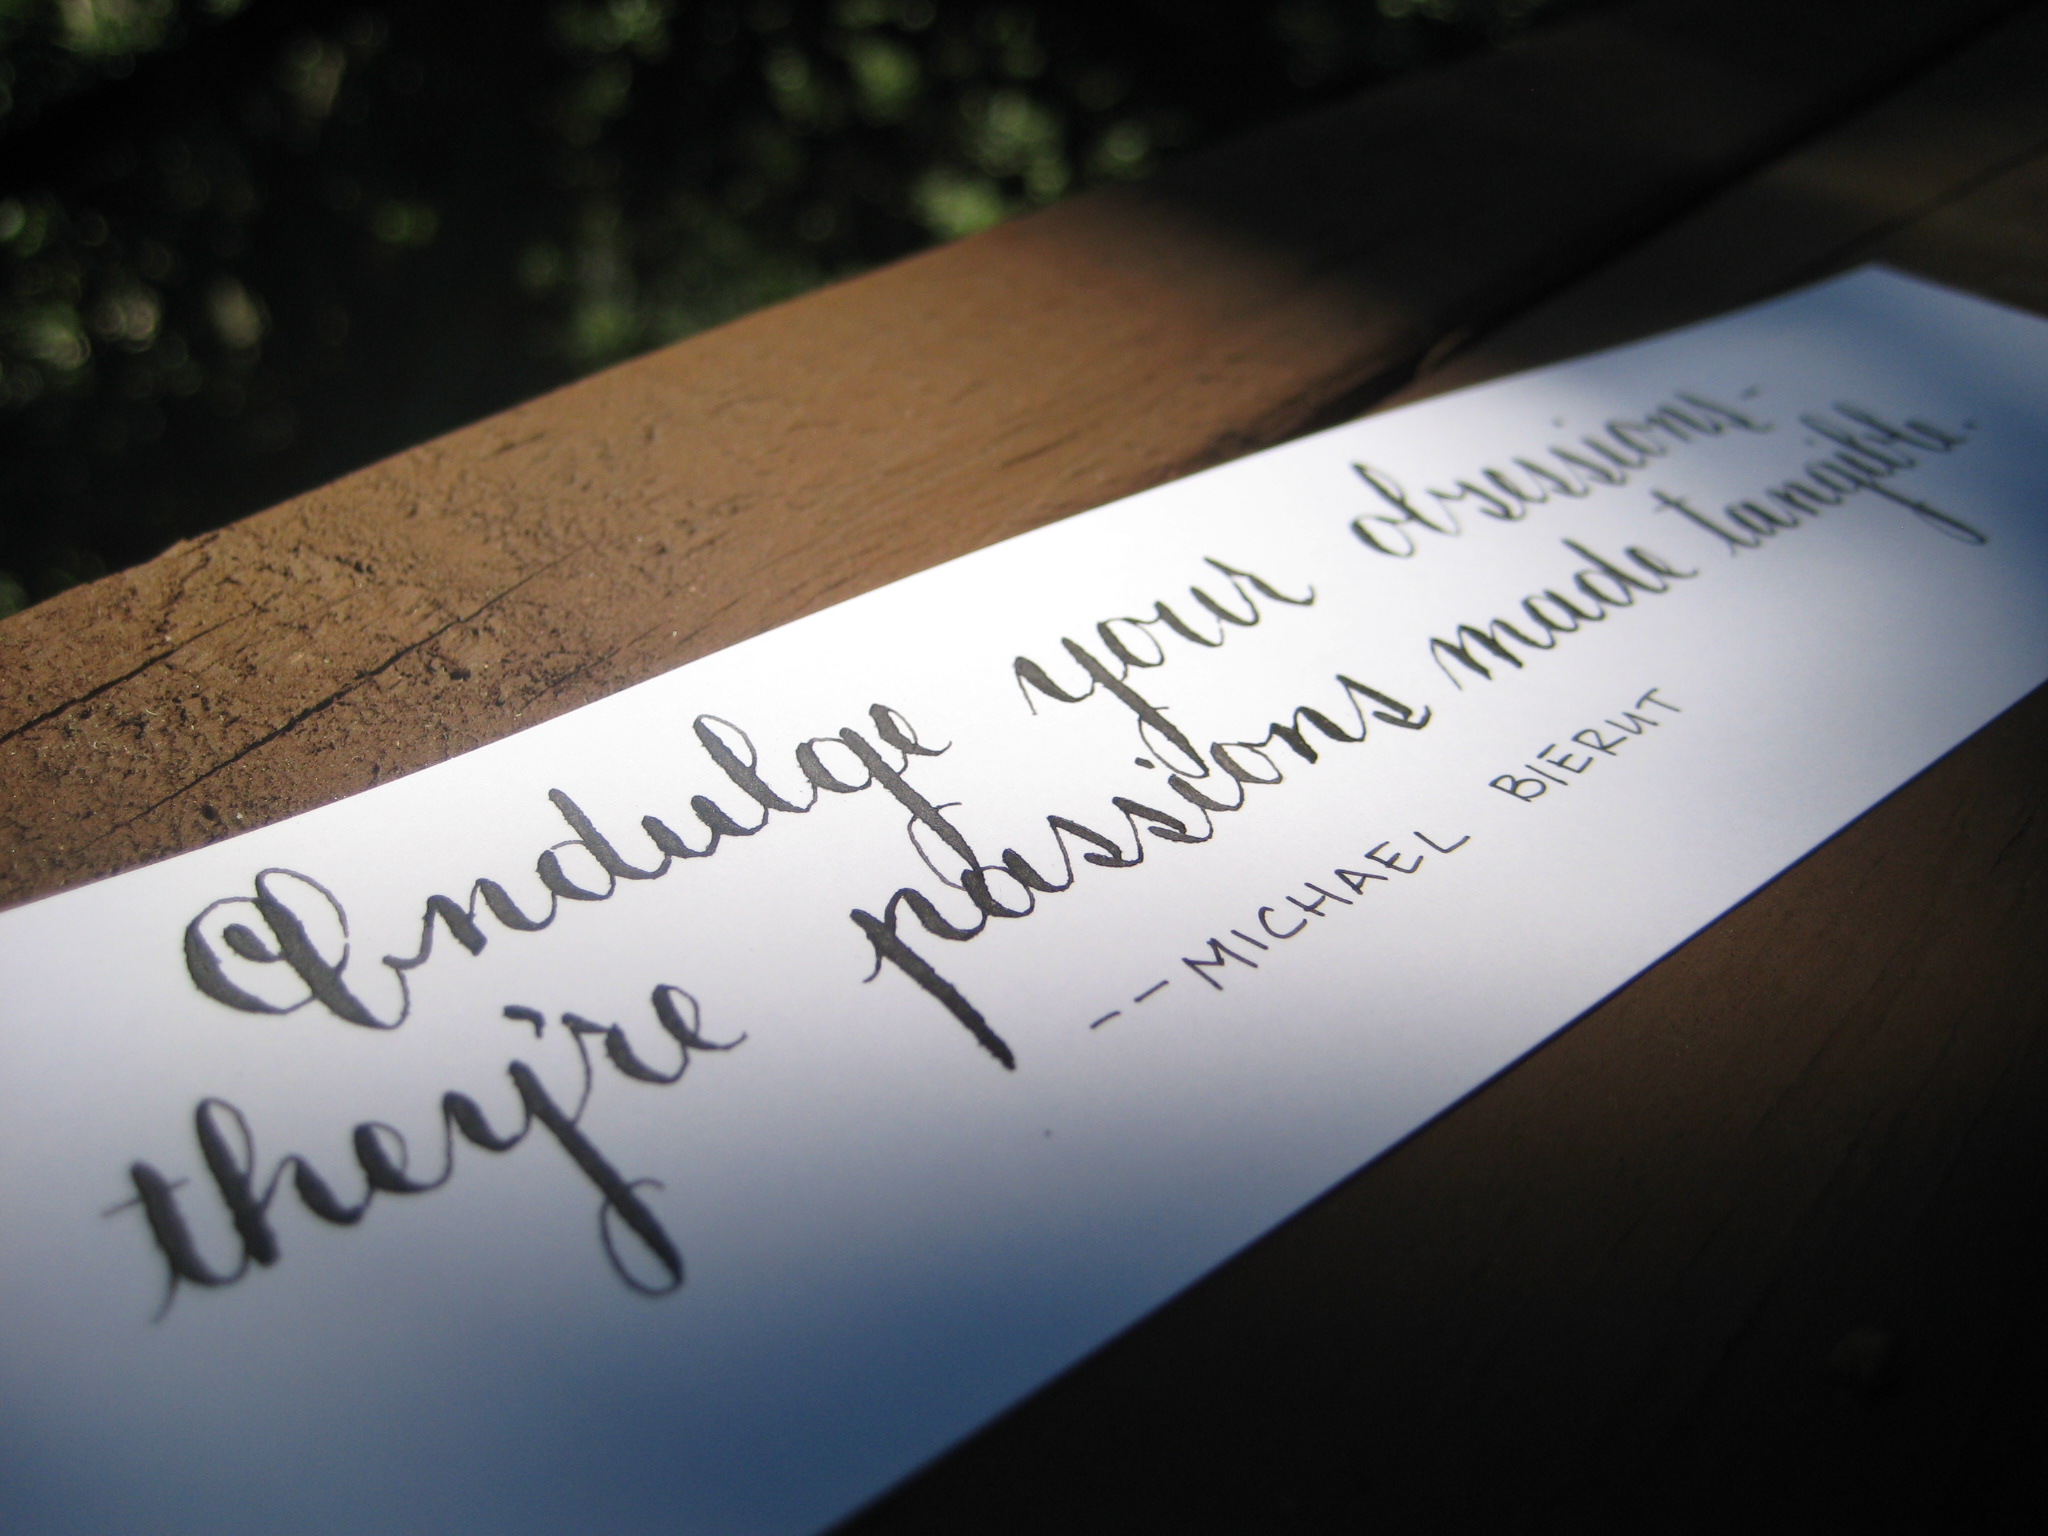 Indulge your obsessions-
they're passions made tangible.
--MICHAEL BIERUT